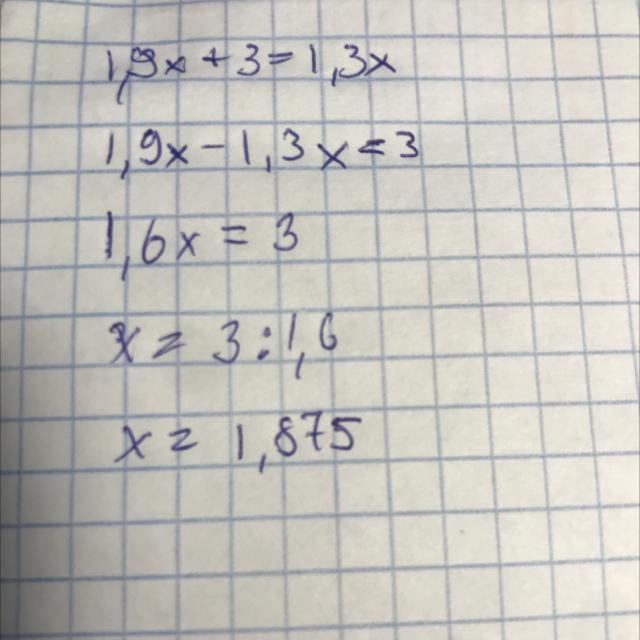 1,9x + 3 = 1,3x
1,9x - 1,3x = 3
1,6x = 3
x = 3 : 1,6
x = 1,875